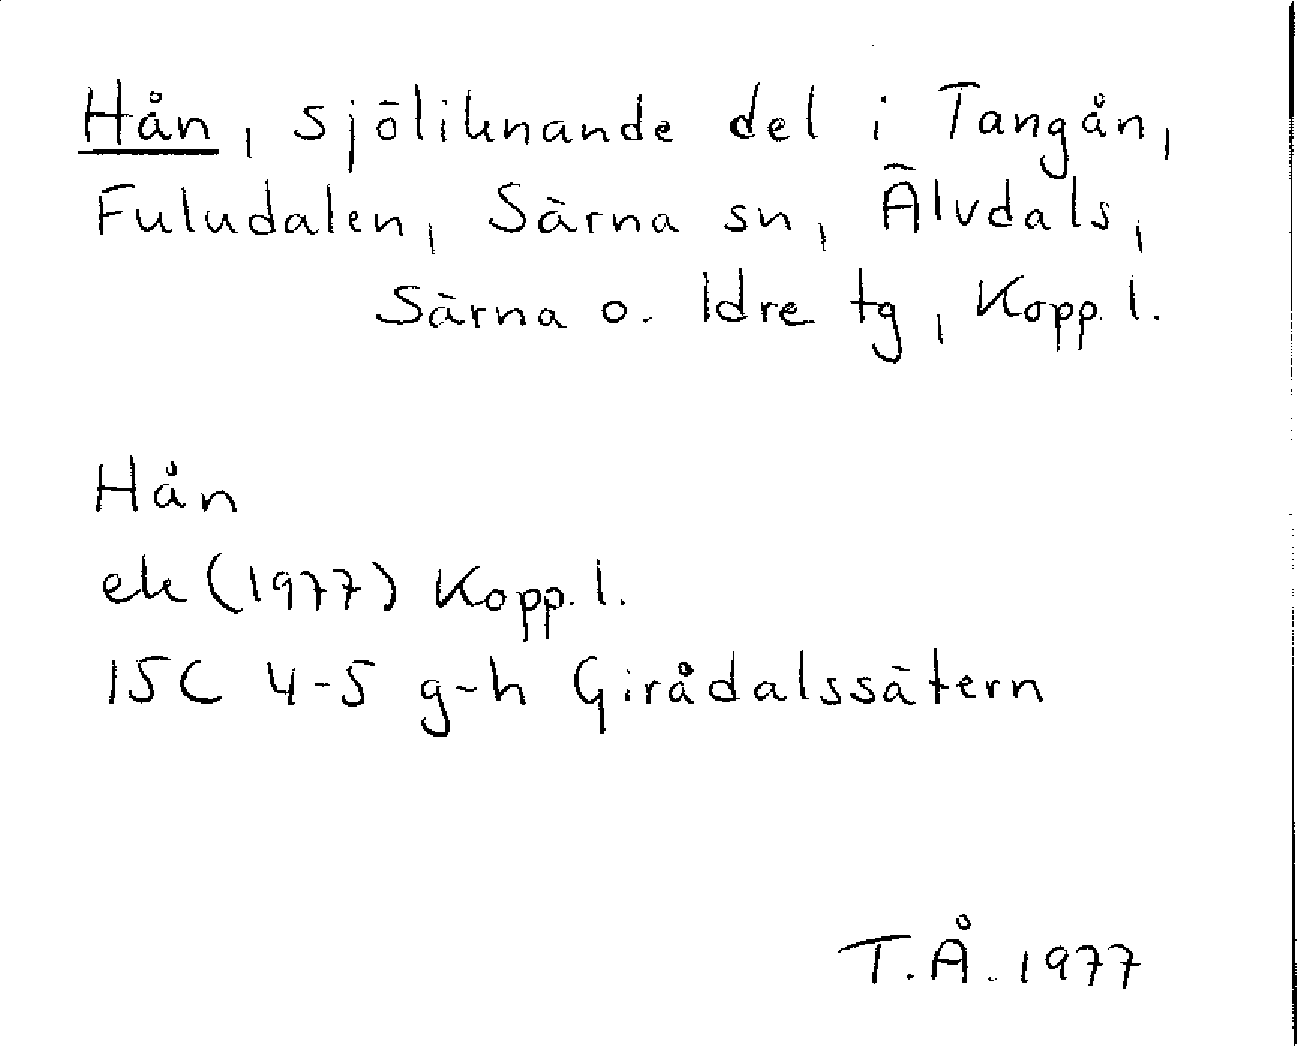 Hån, sjöliknande del i Tangån,
Fuludalen, Särna sn, Älvdals,
Särna o. Idre tg, Kopp. l.
Hån
ek (1977) Kopp. l.
15C 4-5 g-h Girådalssätern
T.Å. 1977